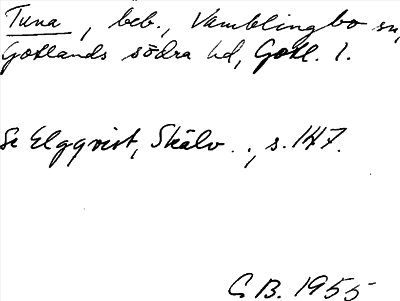 Tuna, beb., Vamblingbo sn,
Gotlands södra hd, Gotl. l.
Se Elgqvist, Skälv.., s. 147.
G B. 1955